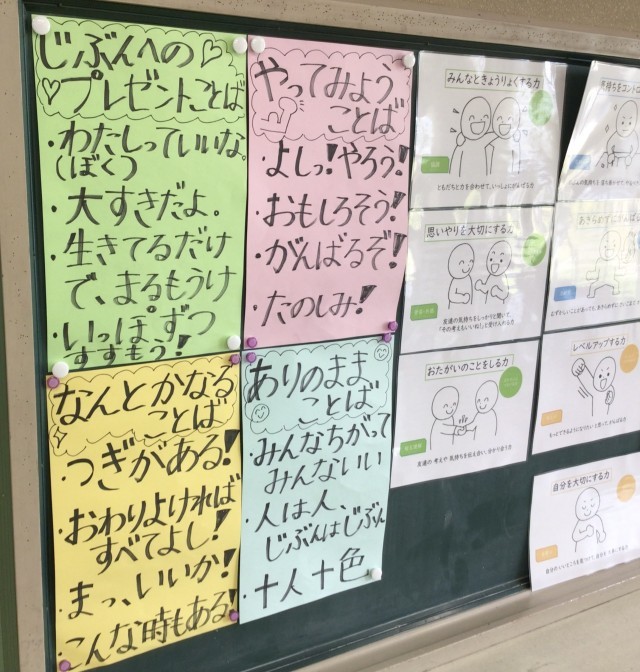 じぶんへの♡
♡プレゼントことば
・わたしっていいな。
(ぼくつ
・大すきだよ。
・生きてるだけ
で、まるもうけ
・いっぽずつ
すすもう!
やってみよう
ことば
・よしっ!やろう!
・おもしろそう!
・がんばるぞ!
・たのしみ!
なんとかなる
ことば
・つぎがある!
・おわりよければ
すべてよし!
・まっ、いいか!
・こんな時もある!
ありのまま
ことば
・みんなちがって
みんないい
・人は人、
じぶんはじぶん
・十人十色
みんなときょうりょくする力
ともだちと力を合わせて、いっしょにがんばる力
思いやりを大切にする力
友達の気持ちをしっかりと聞いて、
「その考えもいいね」と受け入れる力
おたがいのことをしる力
友達の考えや気持ちを伝え合い、分かり合う力
気持ちをコントロ
あきらめずにがんば
レベルアップする力
もっとできるようになりたい!と思って、がんばる力
自分を大切にする力
自分のいいところを見つけて、自分を大切にする力